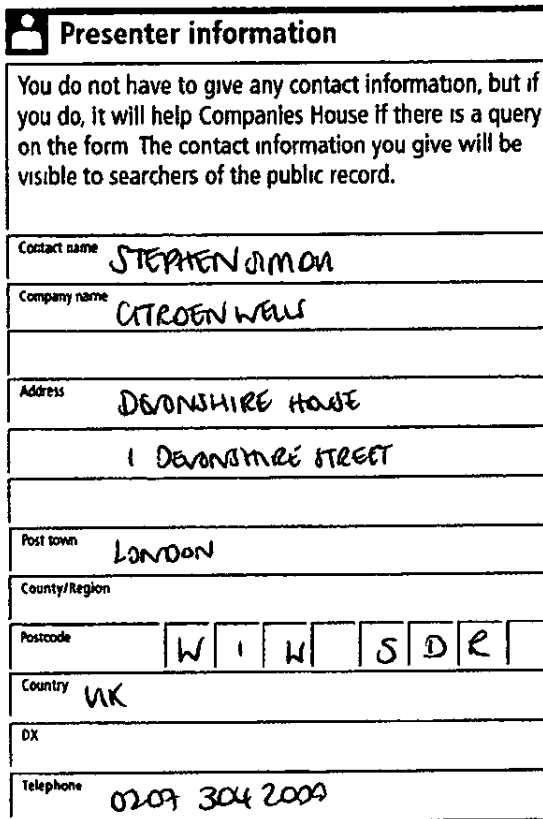 Presenter information
You do not have to give any contact information, but if
you do, it will help Companies House if there is a query
on the form The contact information you give will be
visible to searchers of the public record.
Contact name STEPHEN SIMON
Company name CITROEN WELLS
Address DEVONSHIRE HOUSE
1 DEVONSHIRE STREET
Post town LONDON
County/Region
Postcode W 1 W 5 D R
Country UK
DX
Telephone 0207 304 2000